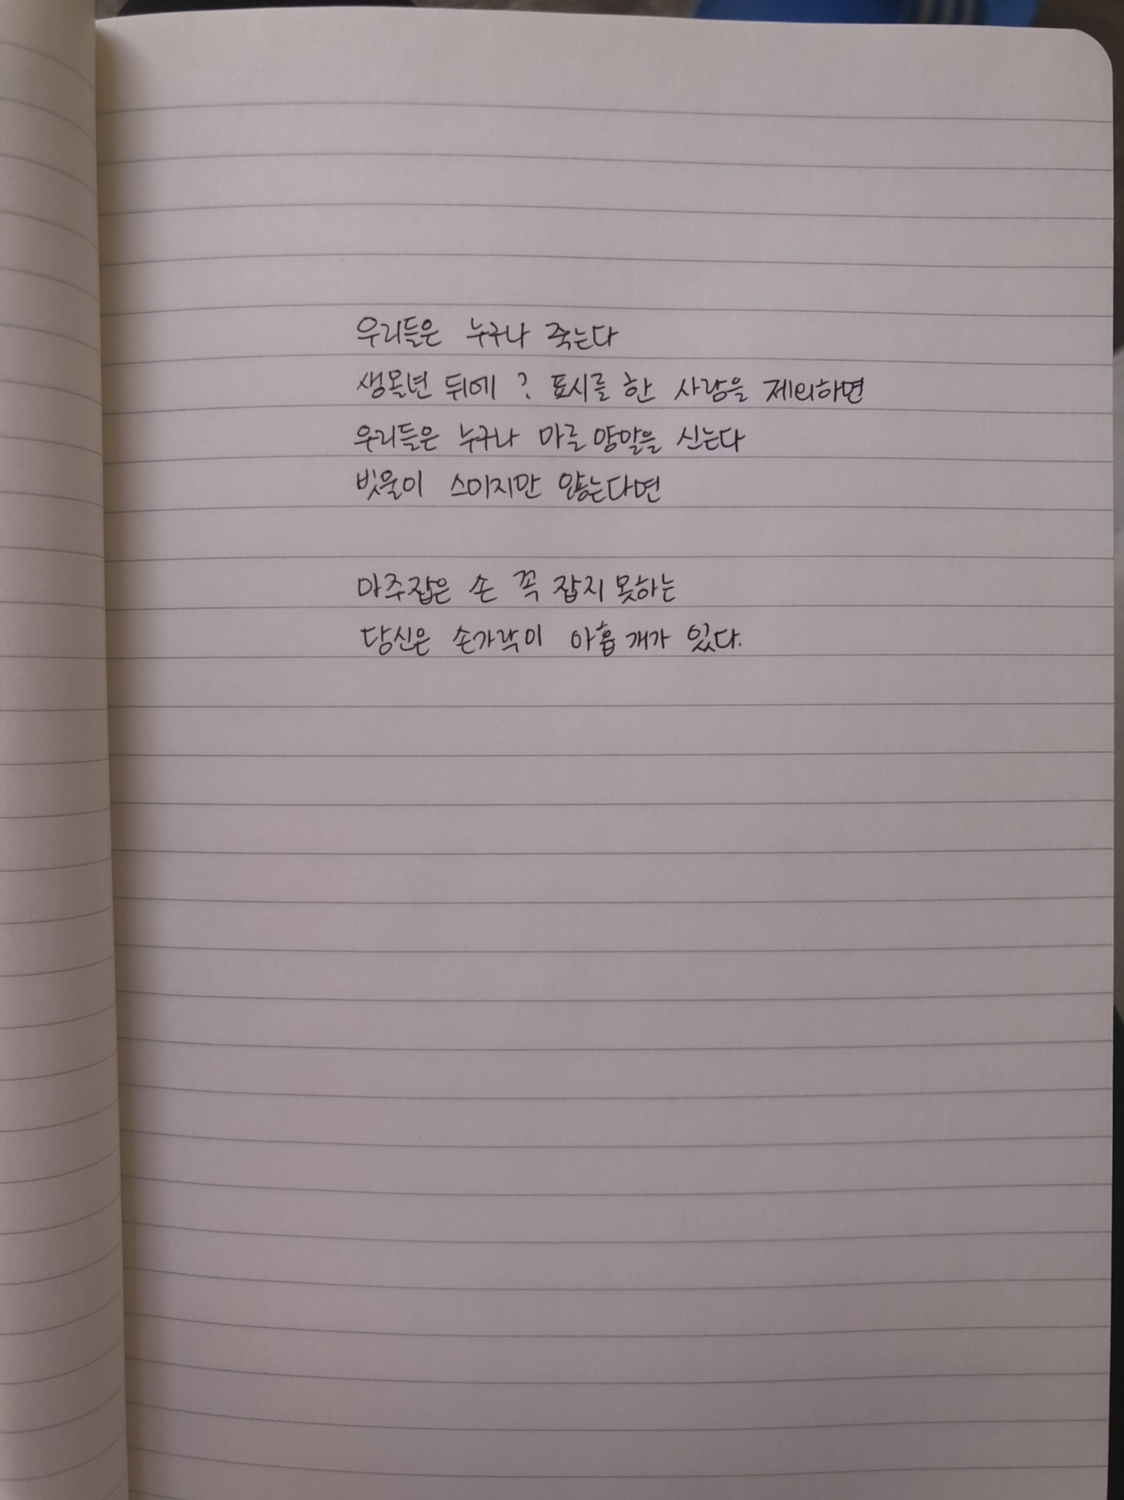 우리들은 누구나 죽는다
생몰년 뒤에 ? 표시를 한 사람을 제외하면
우리들은 누구나 마른 양말을 신는다
빗물이 스미지만 않는다면
마주잡은 손 꼭 잡지 못하는
당신은 손가락이 아홉 개가 있다.